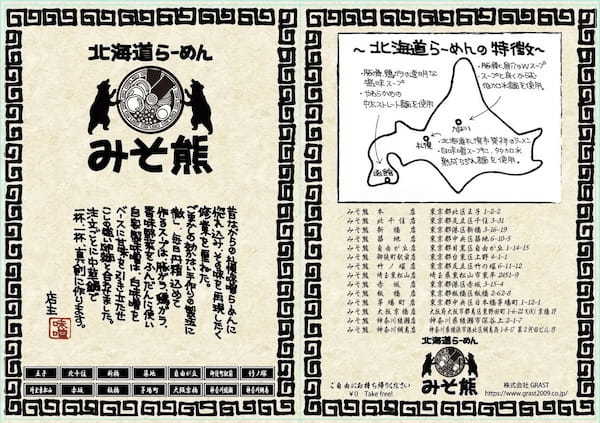 北海道らーめん
みそ熊
昔ながらの札幌味噌らーめんに
惚れ込み、その味を再現したく
修業を重ねた。
ごまかしの効かない手作りの製法に
徹し、毎日丹精込めて
作るスープは、豚がら、鶏がら、
香味野菜をふんだんに使い
自家製味噌は、白味噌を
ベースに甘味を引き立たせ
注文ごとに中華鍋で
一杯一杯、真剣に作ります。
店主 味噌
王子 北千住 新橋 築地 自由が丘 御徒町駅前 竹ノ塚
埼玉東松山 赤坂 板橋 茅場町 大阪京橋 神奈川綾瀬 神奈川綱島
〜北海道らーめんの特徴〜
・豚骨、鶏ガラの透明な
塩味スープ
・やわらかめの
中太ストレート麺を使用
・豚骨と魚介のWスープ
スープと良くからむ
低加水麺を使用
旭川
札幌
・北海道札幌市発祥のラーメン
・白味噌スープに、多加水
熟成ちぢれ麺を使用。
函館
みそ熊 本店 東京都北区王子1-2-2
みそ熊 北千住店 東京都足立区千住3-31
みそ熊 新橋店 東京都港区新橋3-19
みそ熊 築地店 東京都中央区築地6-10-5
みそ熊 自由が丘店 東京都目黒区自由が丘1-14-15
みそ熊 御徒町駅前店 東京都台東区上野6-1-1
みそ熊 竹ノ塚店 東京都足立区竹の塚6-11-12
みそ熊 埼玉東松山店 埼玉県東松山市東平2051-9
みそ熊 赤坂店 東京都港区赤坂3-15-4
みそ熊 板橋店 東京都板橋区板橋2-62-8
みそ熊 茅場町店 東京都中央区日本橋茅場町1-12-1
みそ熊 大阪京橋店
みそ熊 神奈川綾瀬店 神奈川県綾瀬市深谷上2-1-7
みそ熊 神奈川綱島店
北海道らーめん
みそ熊
ご自由にお持ち帰りください
¥0 Take free!
株式会社 GRAST
https://www.grast2009.co.jp/